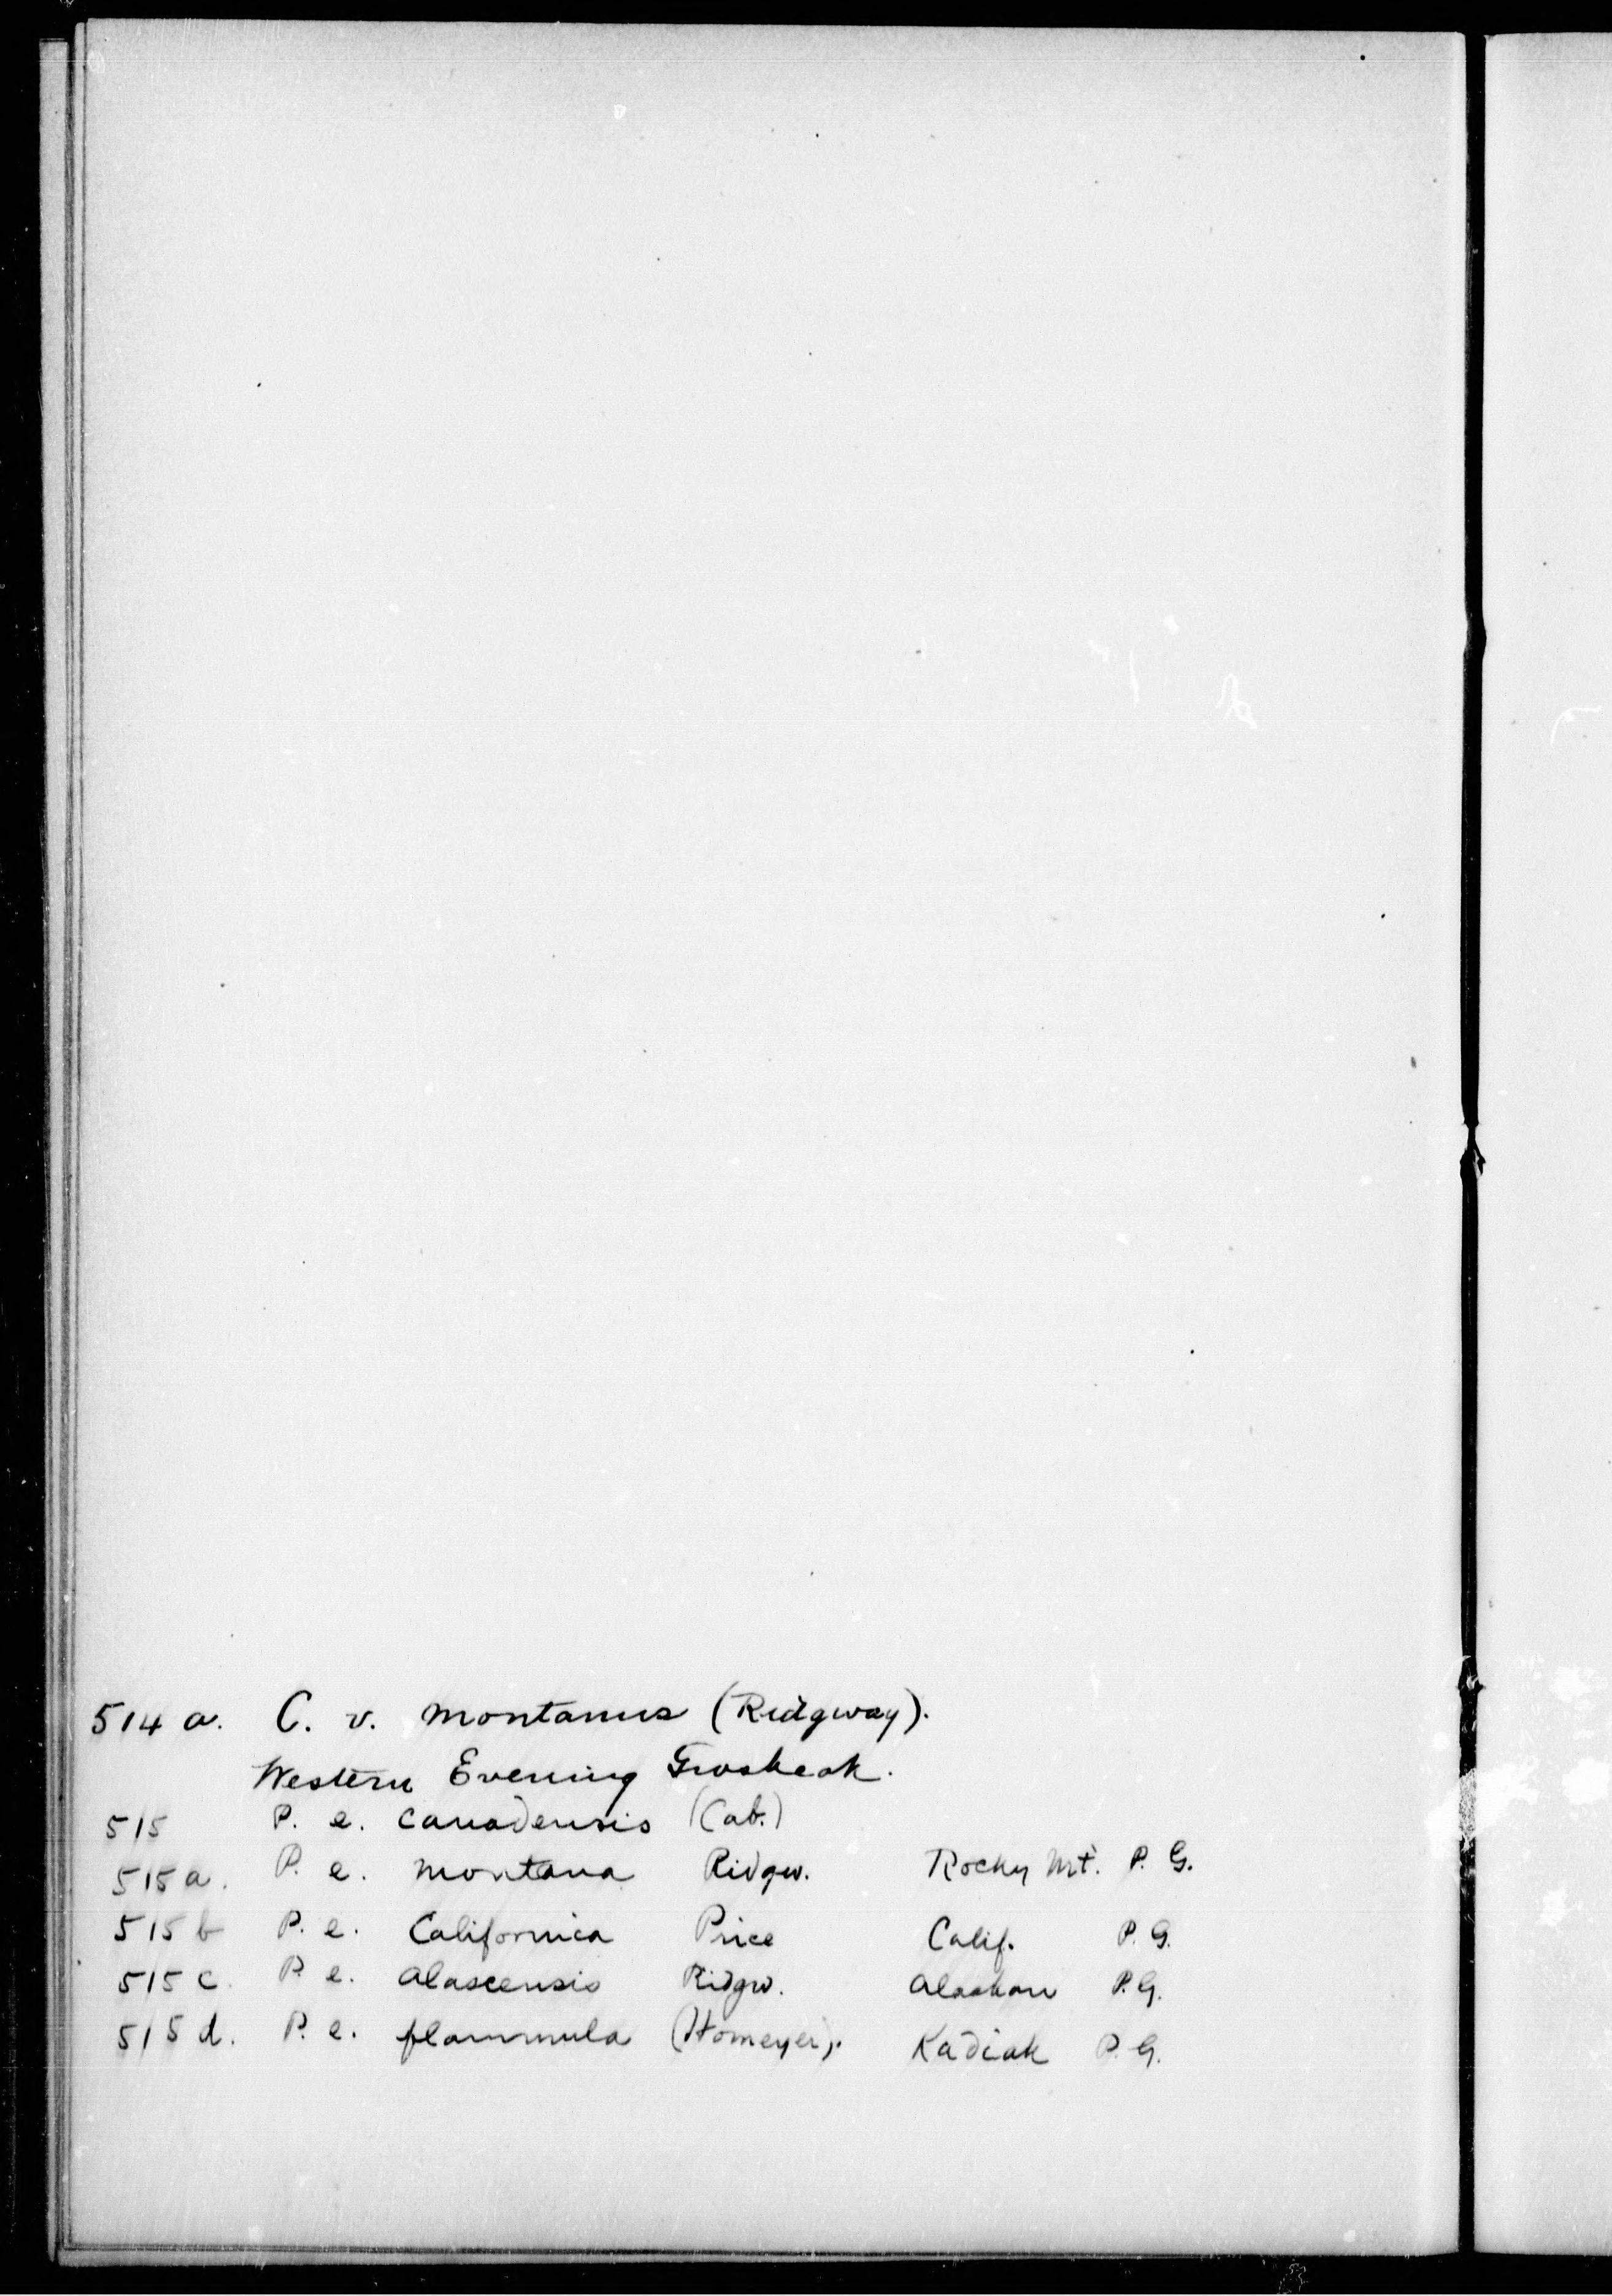 514 a. C. v. montanus (Ridgway).
Western Evening Grosbeak.
515 P. e. canadensis (Cab.)
515 a. P. e. montana Ridgw. Rocky Mt. P. G.
515 b P. e. Californica Price Calif. P. G.
515 c. P. e. alascensis Ridgw. Alaskan P. G.
515 d. P. e. flammula (Homeyer). Kadiak P. G.